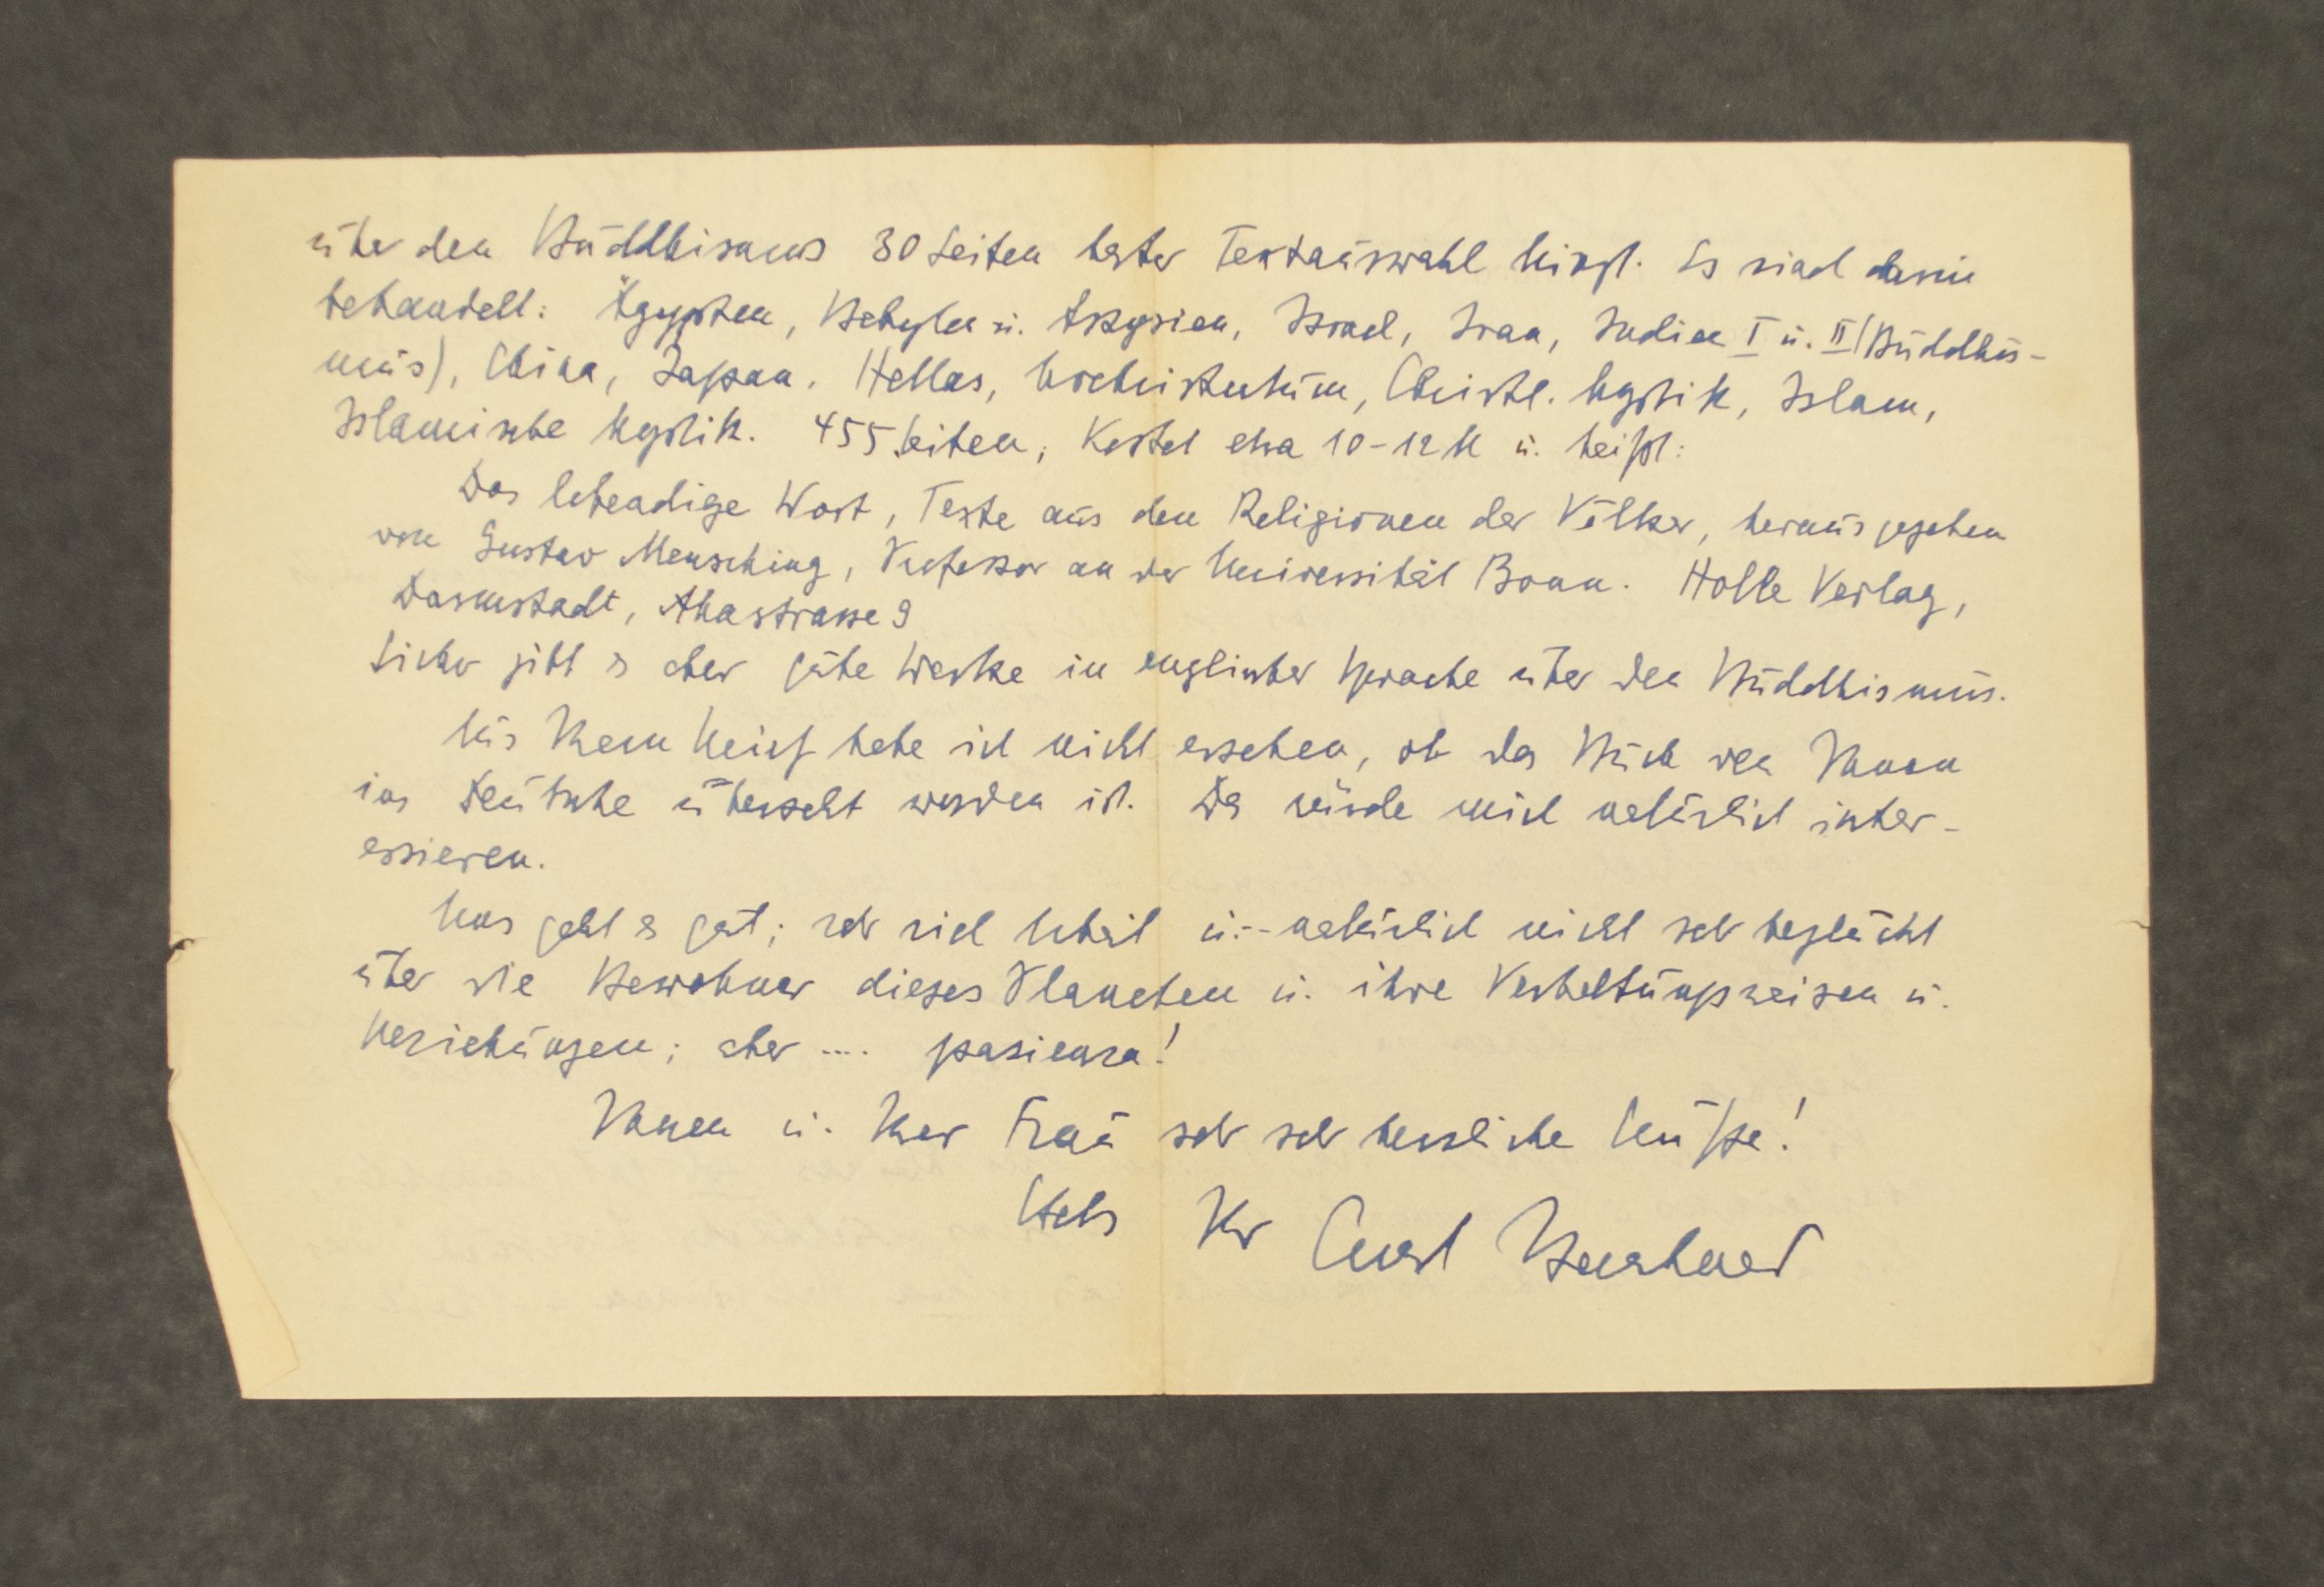 über den Buddhismus 30 Seiten bester Textauswahl bringt. Es sind darin
behandelt: Ägypten, Babylon u. Assyrien, Israel, Iran, Indien I u. II (Buddhis-
mus), China, Japan, Hellas, Urchristentum, Christl. Mystik, Islam,
Islamische Mystik. 455 Seiten, Kostet etwa 10-12 M u. heißt:
Das lebendige Wort, Texte aus den Religionen der Völker, herausgegeben
von Gustav Mensching, Professor an der Universität Bonn. Holle Verlag,
Darmstadt, Ahastrasse 9
Sicher gibt es aber gute Werke in englischer Sprache über den Buddhismus.
Aus Ihrem Brief habe ich nicht ersehen, ob das Buch von Ihnen
ins Deutsche übersetzt worden ist. Das würde mich natürlich inter-
essieren.
Uns geht es gut; sehr viel Arbeit u. - natürlich nicht sehr beglückt
über die Bewohner dieses Planeten u. ihre Verhaltungsweisen u.
Beziehungen; aber .... pasienza!
Ihnen u. Ihrer Frau sehr sehr herzliche Grüße!
Stets Ihr Curt